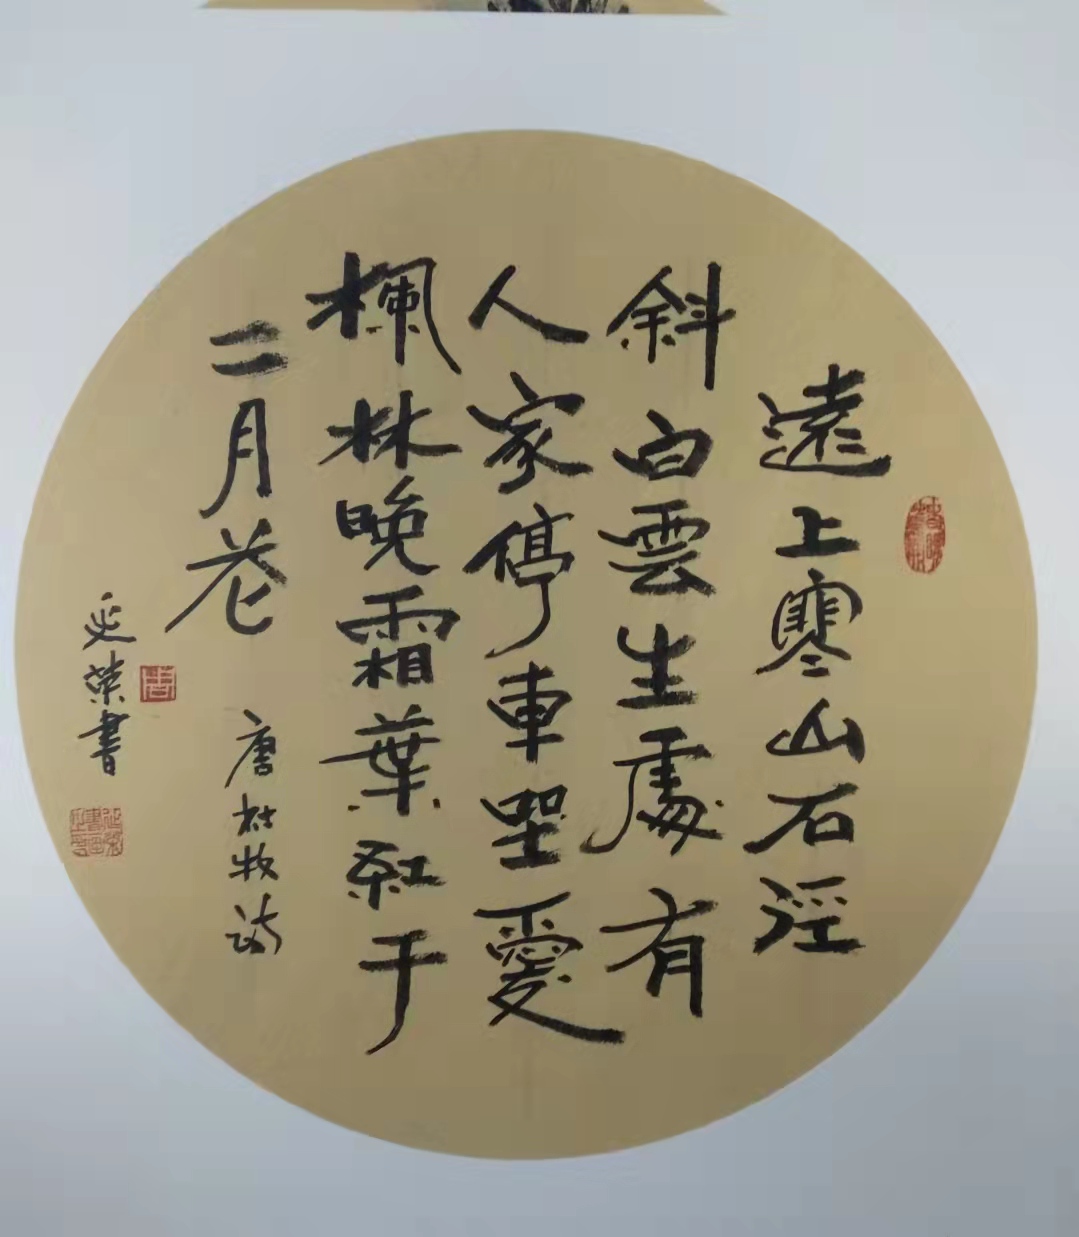 遠上寒山石徑
斜白雲生處有
人家停車坐愛
楓林晚霜葉紅于
二月花
唐杜牧詩
延榮書
周